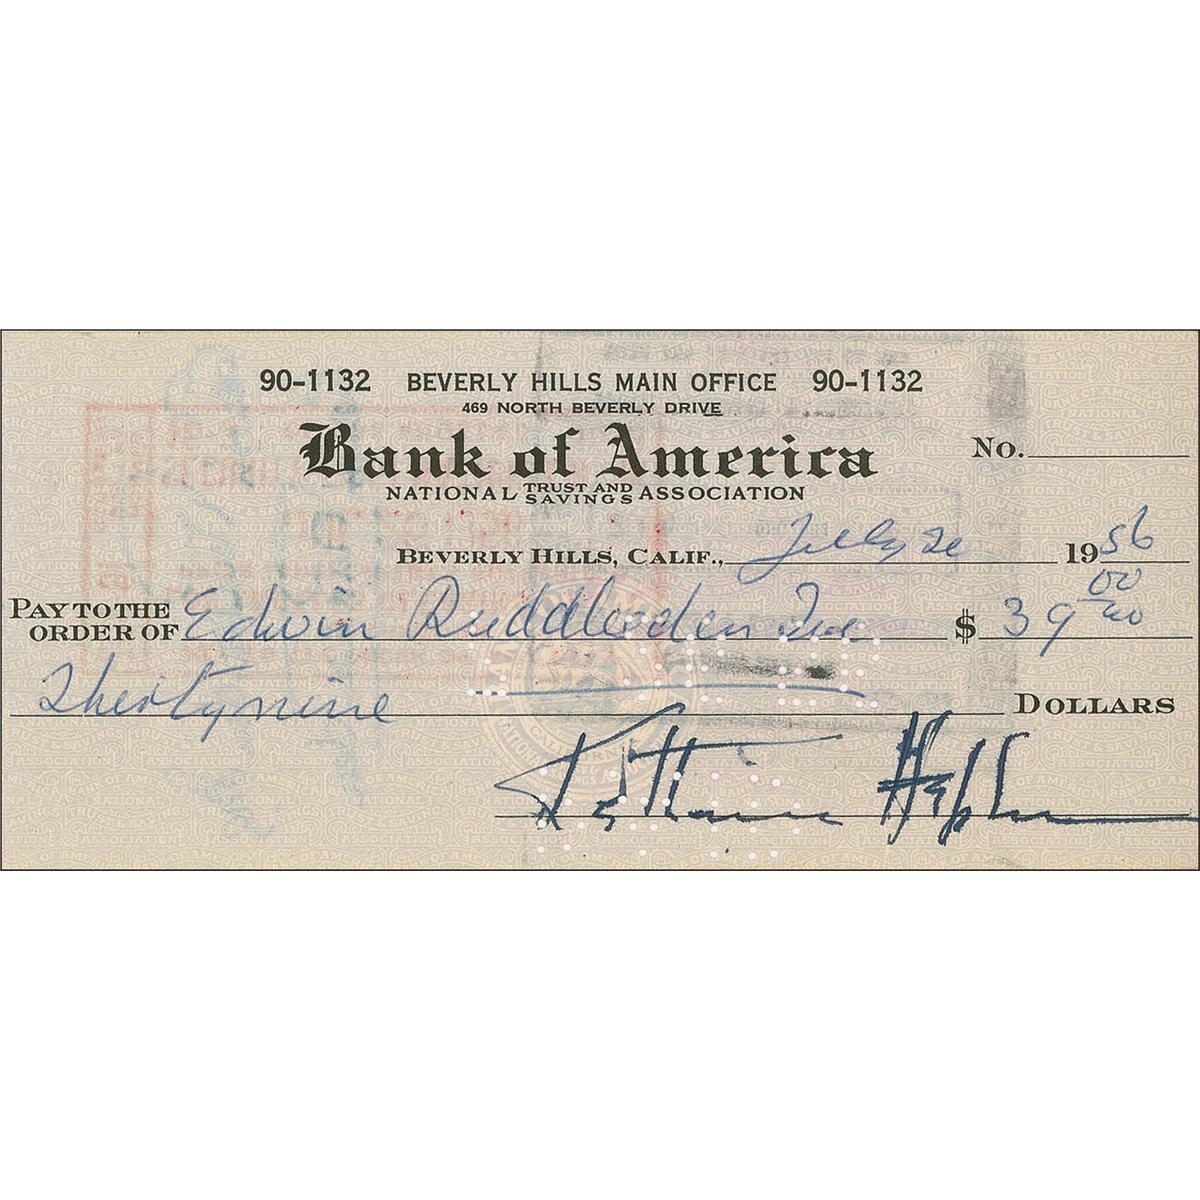 90-1132 BEVERLY HILLS MAIN OFFICE 90-1132
469 NORTH BEVERLY DRIVE
Bank of America
NATIONAL TRUST AND SAVINGS ASSOCIATION
No.
BEVERLY HILLS, CALIF., July 1956
PAY TO THE ORDER OF Edwin Inc $ 39 00
Thirtynine DOLLARS
Katharine Hepburn